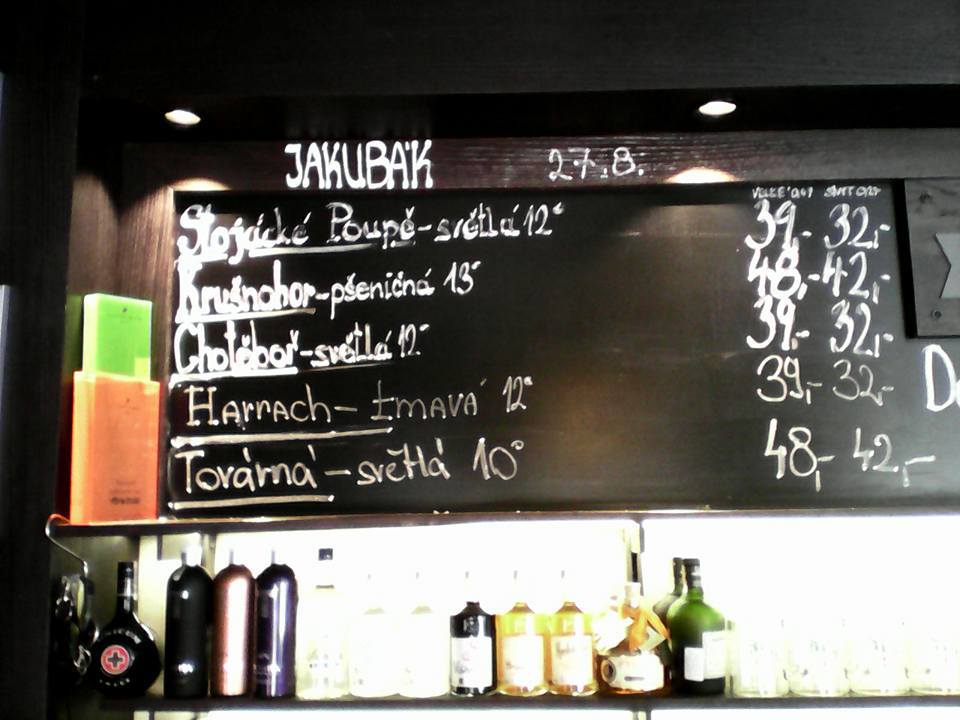 JAKUBÁK 27.8.
VELKÉ 0,4l
Stojcické Poupě-světlá 12° 39,- 32,-
Krušnohor-pšeničná 13° 48,- 42,-
Chotěboř-světlá 12° 39,- 32,-
Harrach-tmavá 12° 39,- 32,-
Továrna-světlá 10° 48,- 42,-